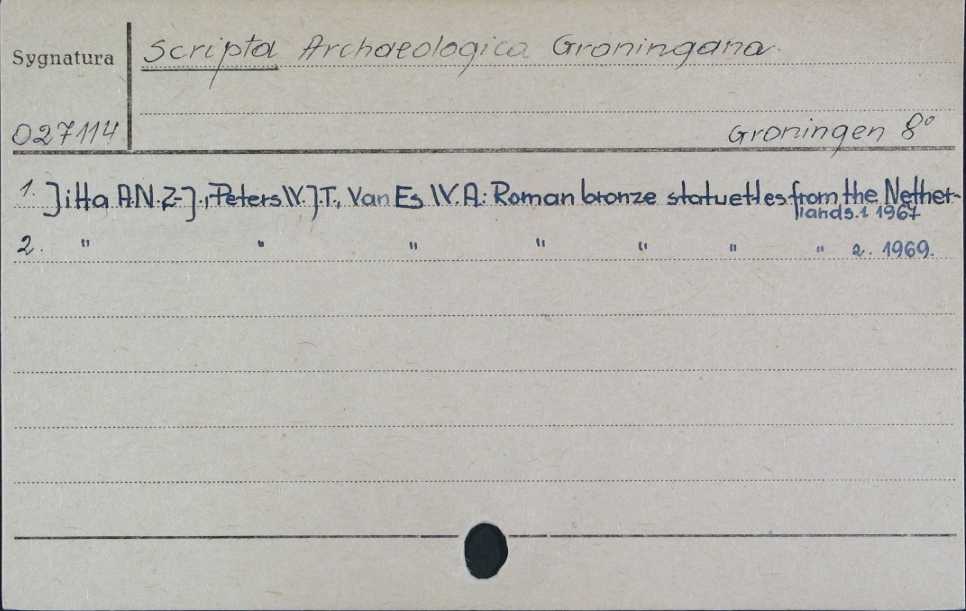 Sygnatura Scripta Archaeologica Groningana
027114 Groningen 8°
1. Jitta A.N.Z-J., Peters W.J.T., Van Es W.A: Roman bronze statuettes from the Nether-
lands.1 1967
2. " " " " " " " 2. 1969.